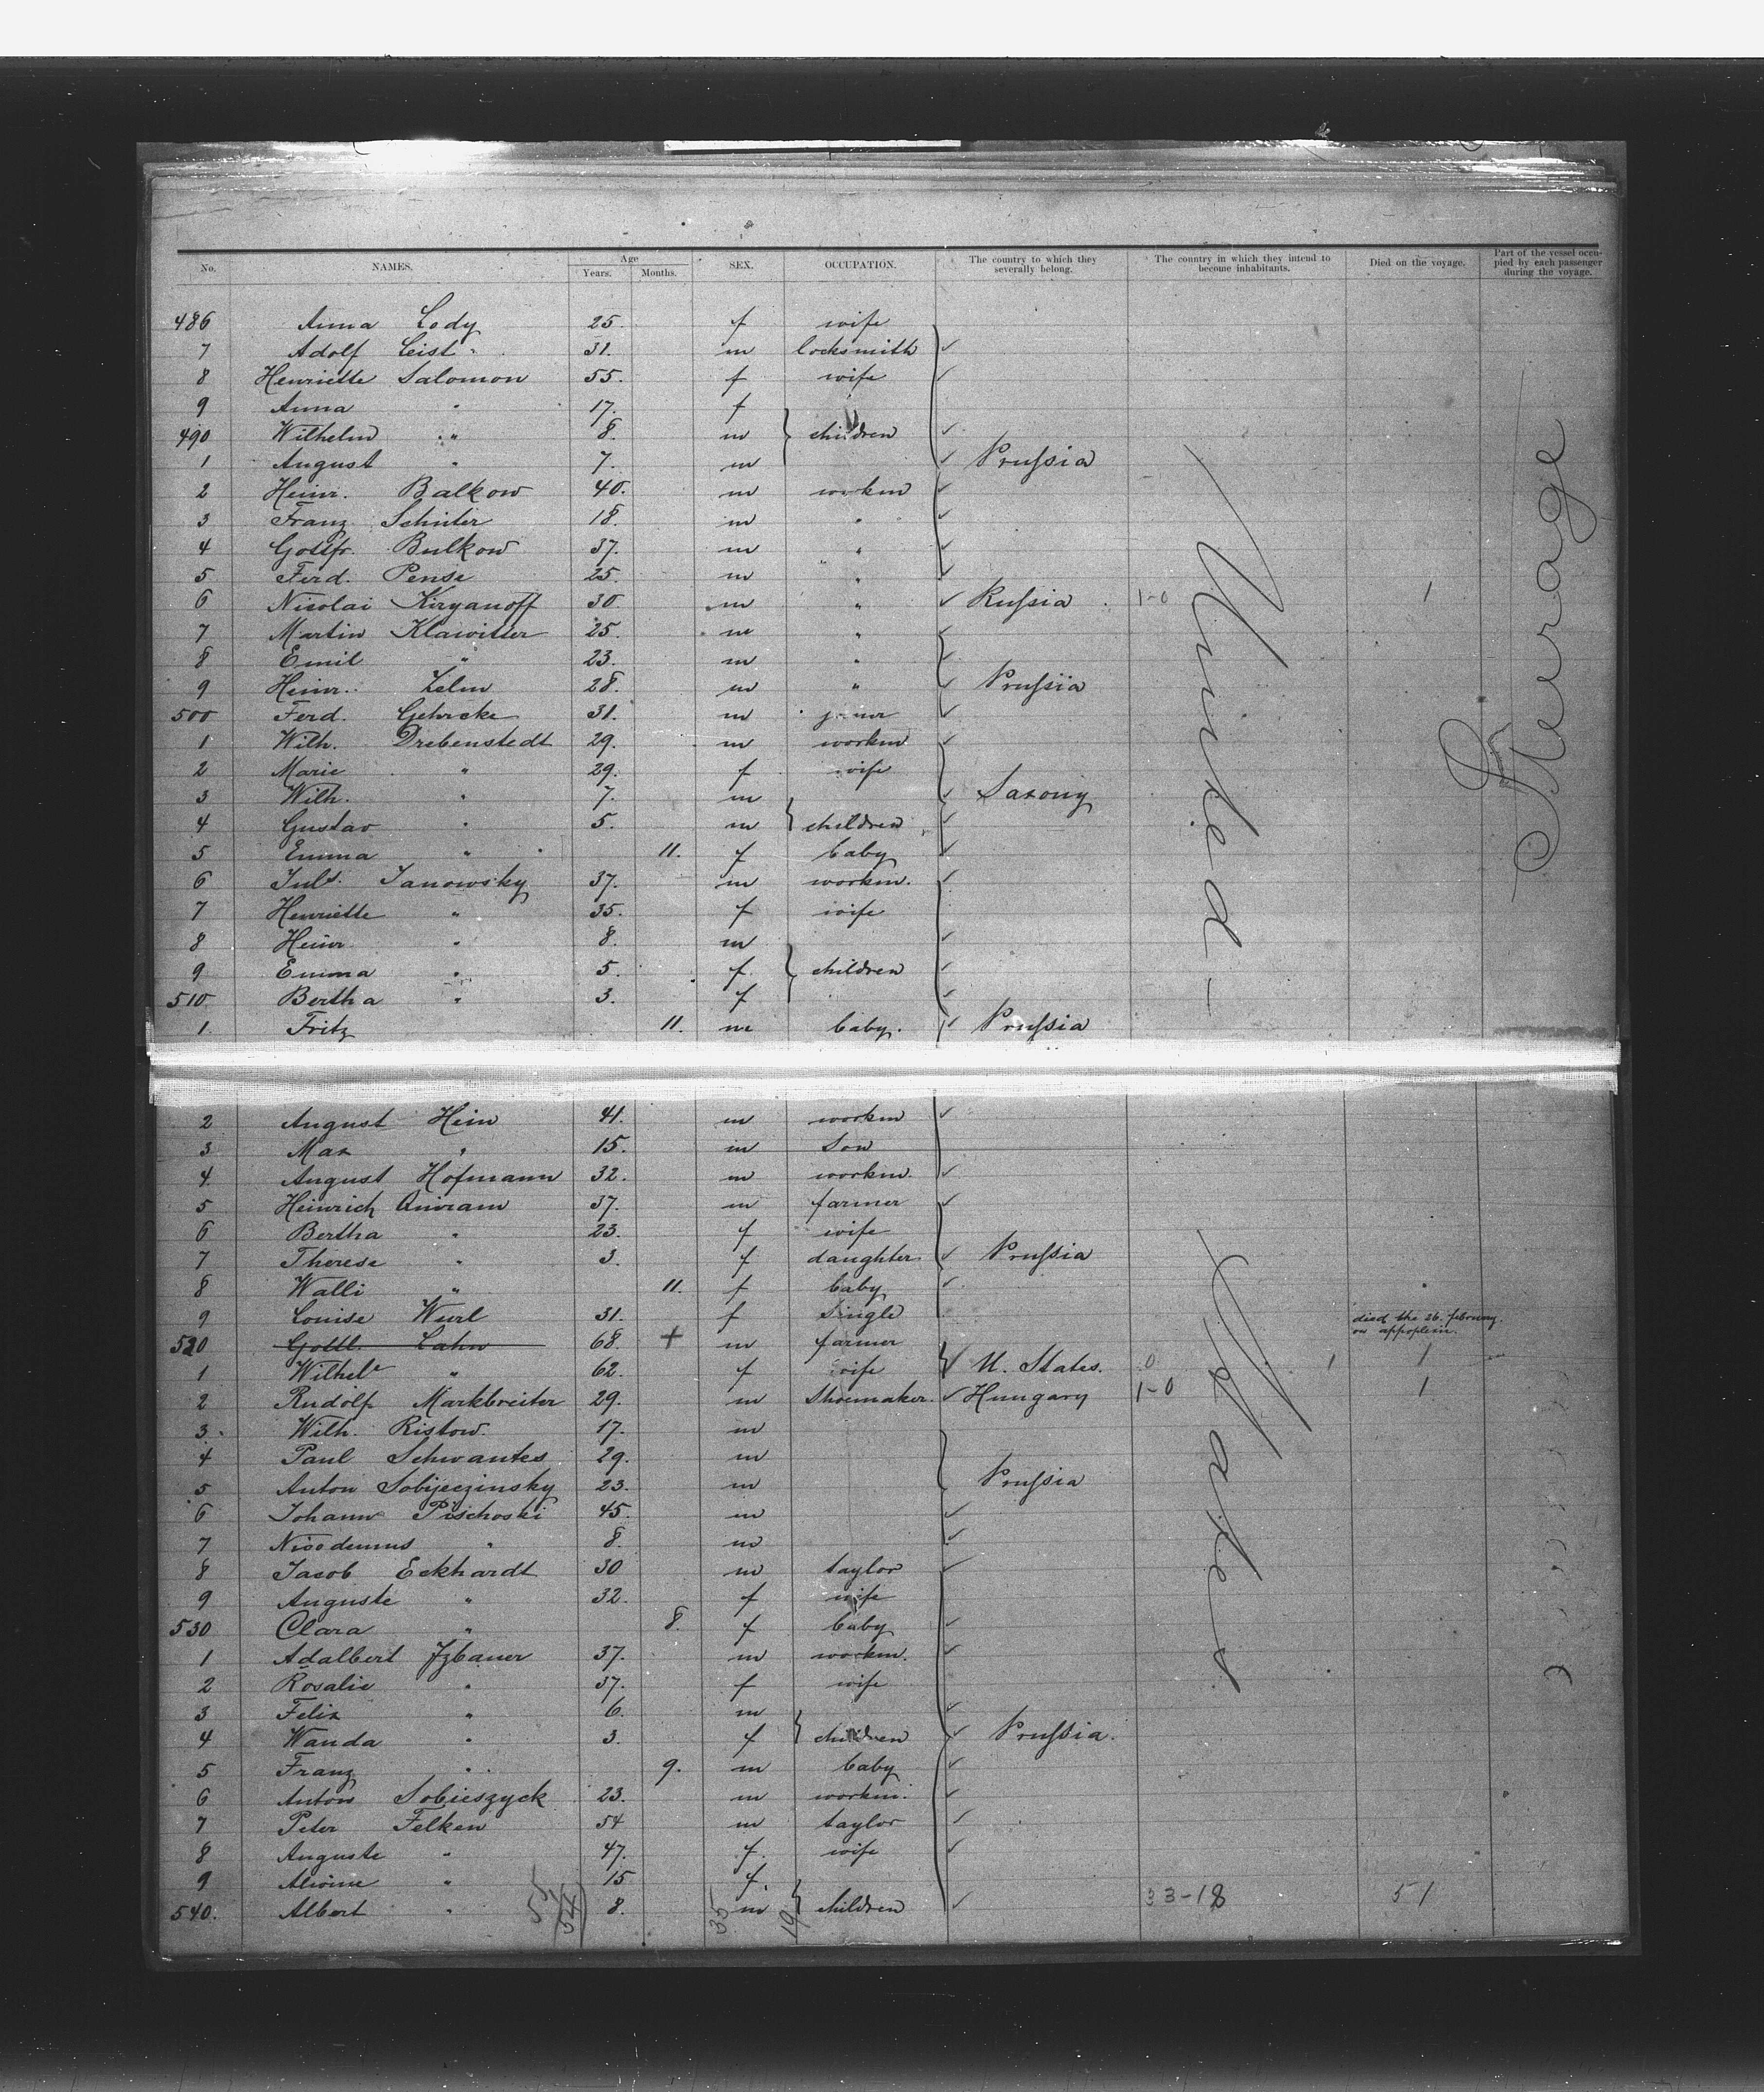 No. NAMES. Age Years. Months. SEX. OCCUPATION. The country to which they severally belong. The country in which they intend to become inhabitants. Died on the voyage. Part of the vessel occupied by each passenger during the voyage.
486 Anna Lody 25. f wife
7 Adolf Leist 31. m locksmith
8 Henriette Salomon 55. f wife
9 Anna " 17. f
490 Wilhelm " 8. m children
1 August " 7. m Prussia
2 Heinr. Balkow 40. m workm
3 Franz Schüler 18. m "
4 Gottfr. Bulkow 37. m "
5 Ferd. Pense 25. m "
6 Nicolai Kiryanoff 30. m " Russia 1-0 1
7 Martin Klawitter 25. m "
8 Emil " 23. m "
9 Heinr. Zelm 28. m " Prussia
500 Ferd. Gehrcke 31. m joiner
1 Wilh. Drebenstedt 29. m workm
2 Marie " 29. f wife
3 Wilh. " 7. m Saxony
4 Gustav " 5. m children
5 Emma " 11. f baby
6 Juls. Janowsky 37. m workm.
7 Henriette " 35. f wife
8 Heinr. " 8. m
9 Emma " 5. f children
510 Bertha " 3. f
1. Fritz 11. m baby. Prussia
2 August Hein 41. m workm
3 Max " 15. m Son
4. August Hofmann 32. m workm.
5 Heinrich Quiram 37. m farmer
6 Bertha " 23. f wife
7 Therese " 3. f daughter Prussia
8 Walli " 11. f baby
9 Louise Wurl 31. f Single
520 Gottl. Lahn 68. + m farmer died the 26. february on appoplexie.
1 Wilhele " 62. f wife U. States. 0 1 1
2 Rudolf Markbreiter 29. m Shoemaker. Hungary 1-0 1
3. Wilh. Ristow. 17. m
4 Paul Schwantes 29. m
5 Anton Sobijeczinsky 23. m Prussia
6 Johann Pischoski 45. m
7 Nicodemus " 8. m
8 Jacob Eckhardt 30 m taylor
9 Auguste " 32. f wife
530 Clara " 8. f baby
1 Adalbert Jzbaner 37. m workm.
2 Rosalie " 37. f wife
3 Felix " 6. m
4 Wanda " 3. f children Prussia.
5 Franz " 9. m baby
6 Anton Sobieszyck 23. m workm.
7 Peter Felken 54 m taylor
8 Auguste " 47. f. wife
9 Alwine " 15 f.
540. Albert " 8. m children 33-18 51
55 54 35 19
United
States
Steerage